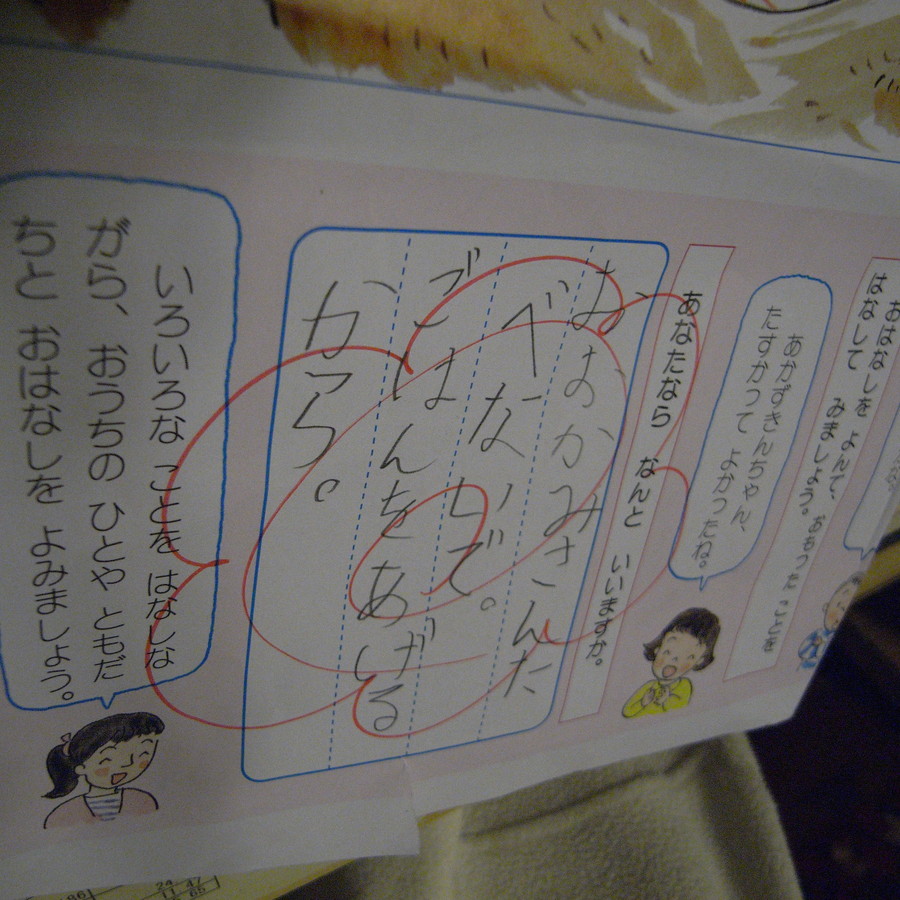 おはなしを よんで、おもった ことを
はなして みましょう。
あかずきんちゃん、
たすかって よかったね。
あなたなら なんと いいますか。
おおかみさんた
べないで。
ごはんをあげる
から。
いろいろな ことを はなしな
がら、おうちの ひとや ともだ
ちと おはなしを よみましょう。
24 47
11 65